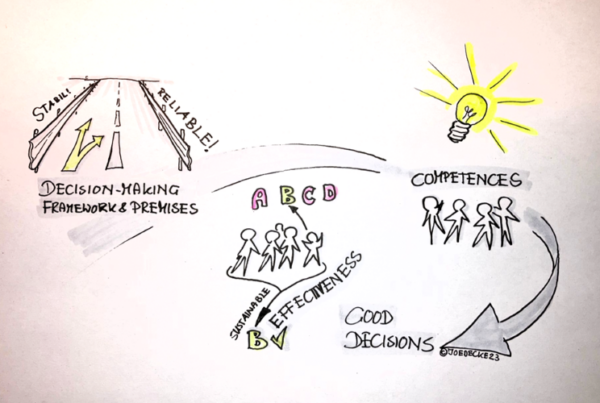 STABIL!
RELIABLE!
DECISION-MAKING
FRAMEWORK & PREMISES
A B C D
SUSTAINABLE
EFFECTIVENESS
B✓
COMPETENCES
GOOD
DECISIONS
©JOEDECKE23